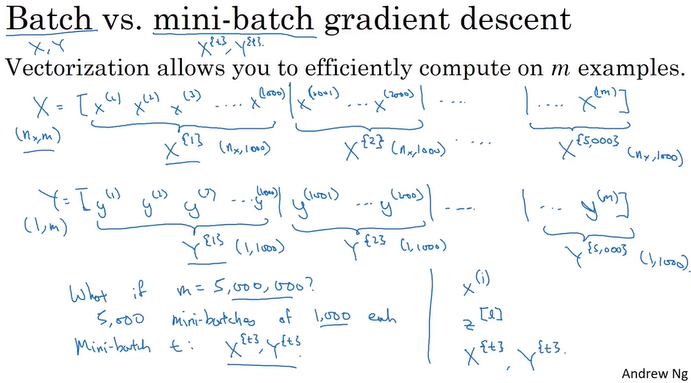 Batch vs. mini-batch gradient descent
X, Y X^{t}, Y^{t}.
Vectorization allows you to efficiently compute on m examples.
X = [x^(1) x^(2) x^(3) .... x^(1000) | x^(1001) ... x^(2000) | .... | ... x^(m)]
(n_x, m) X^{1} (n_x, 1000) X^{2} (n_x, 1000) .... X^{5,000} (n_x, 1000)
Y = [y^(1) y^(2) y^(3) ... y^(1000) | y^(1001) ... y^(2000) | .... | ... y^(m)]
(1, m) Y^{1} (1, 1000) Y^{2} (1, 1000) Y^{5,000} (1, 1000)
What if m = 5,000,000?
5,000 mini-batches of 1,000 each
Mini-batch t: X^{t}, Y^{t}.
x^(i)
z^[l]
X^{t}, Y^{t}.
Andrew Ng